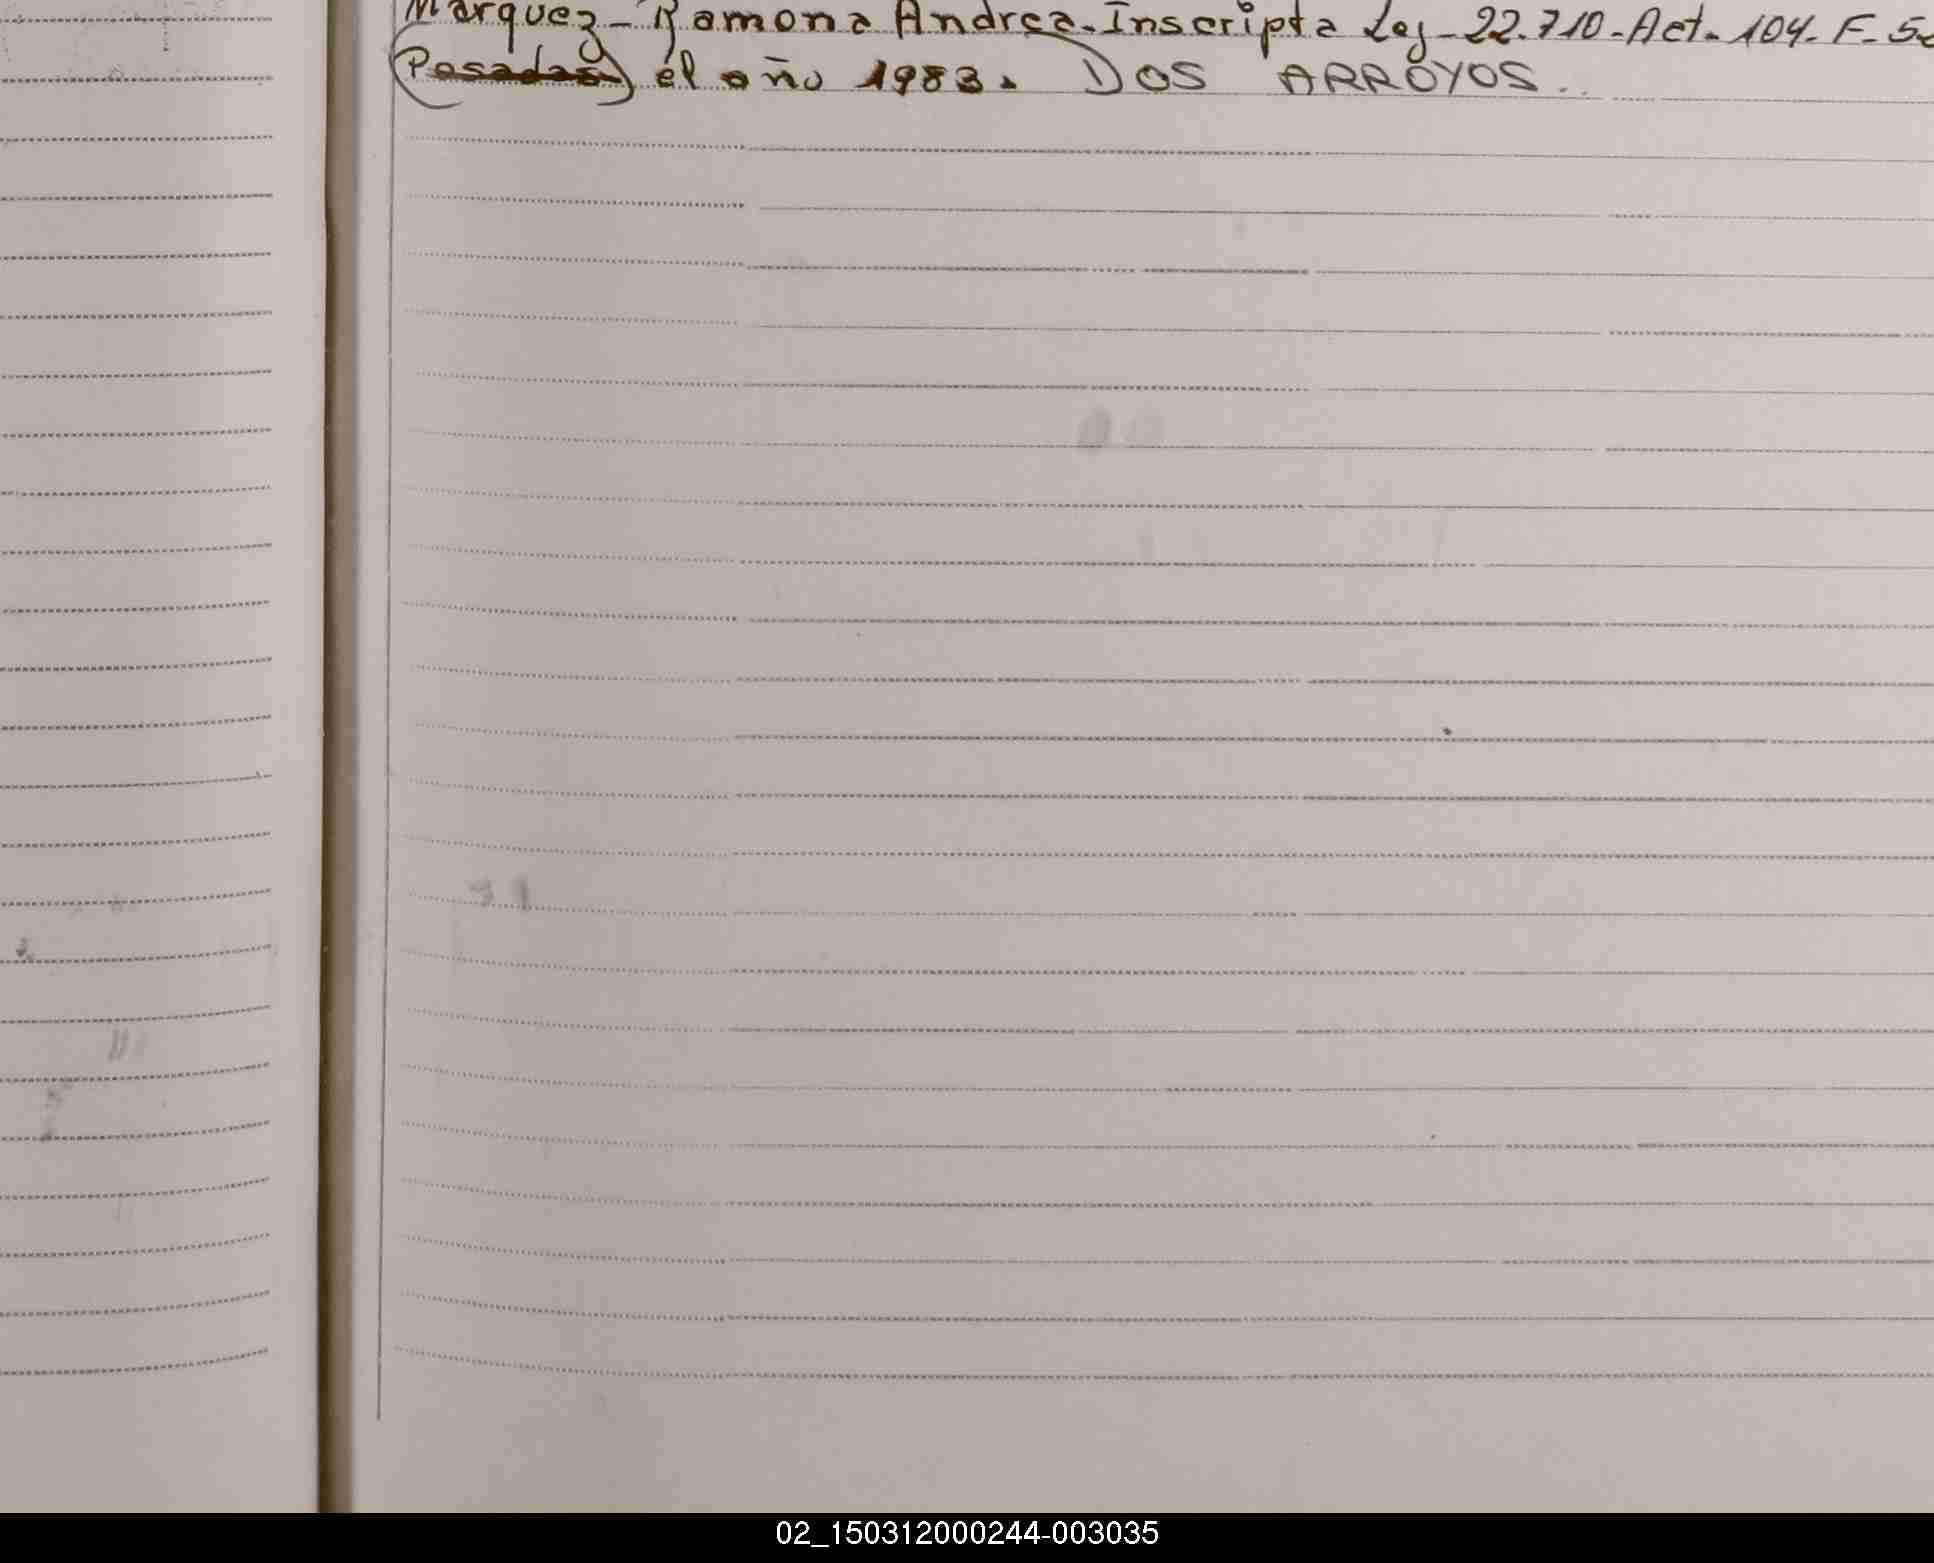 Marquez - Ramona Andrea. Inscripta Leg - 22.710 - Act. 104. F. 52
(Posadas) el año 1983. DOS ARROYOS..
02_150312000244-003035